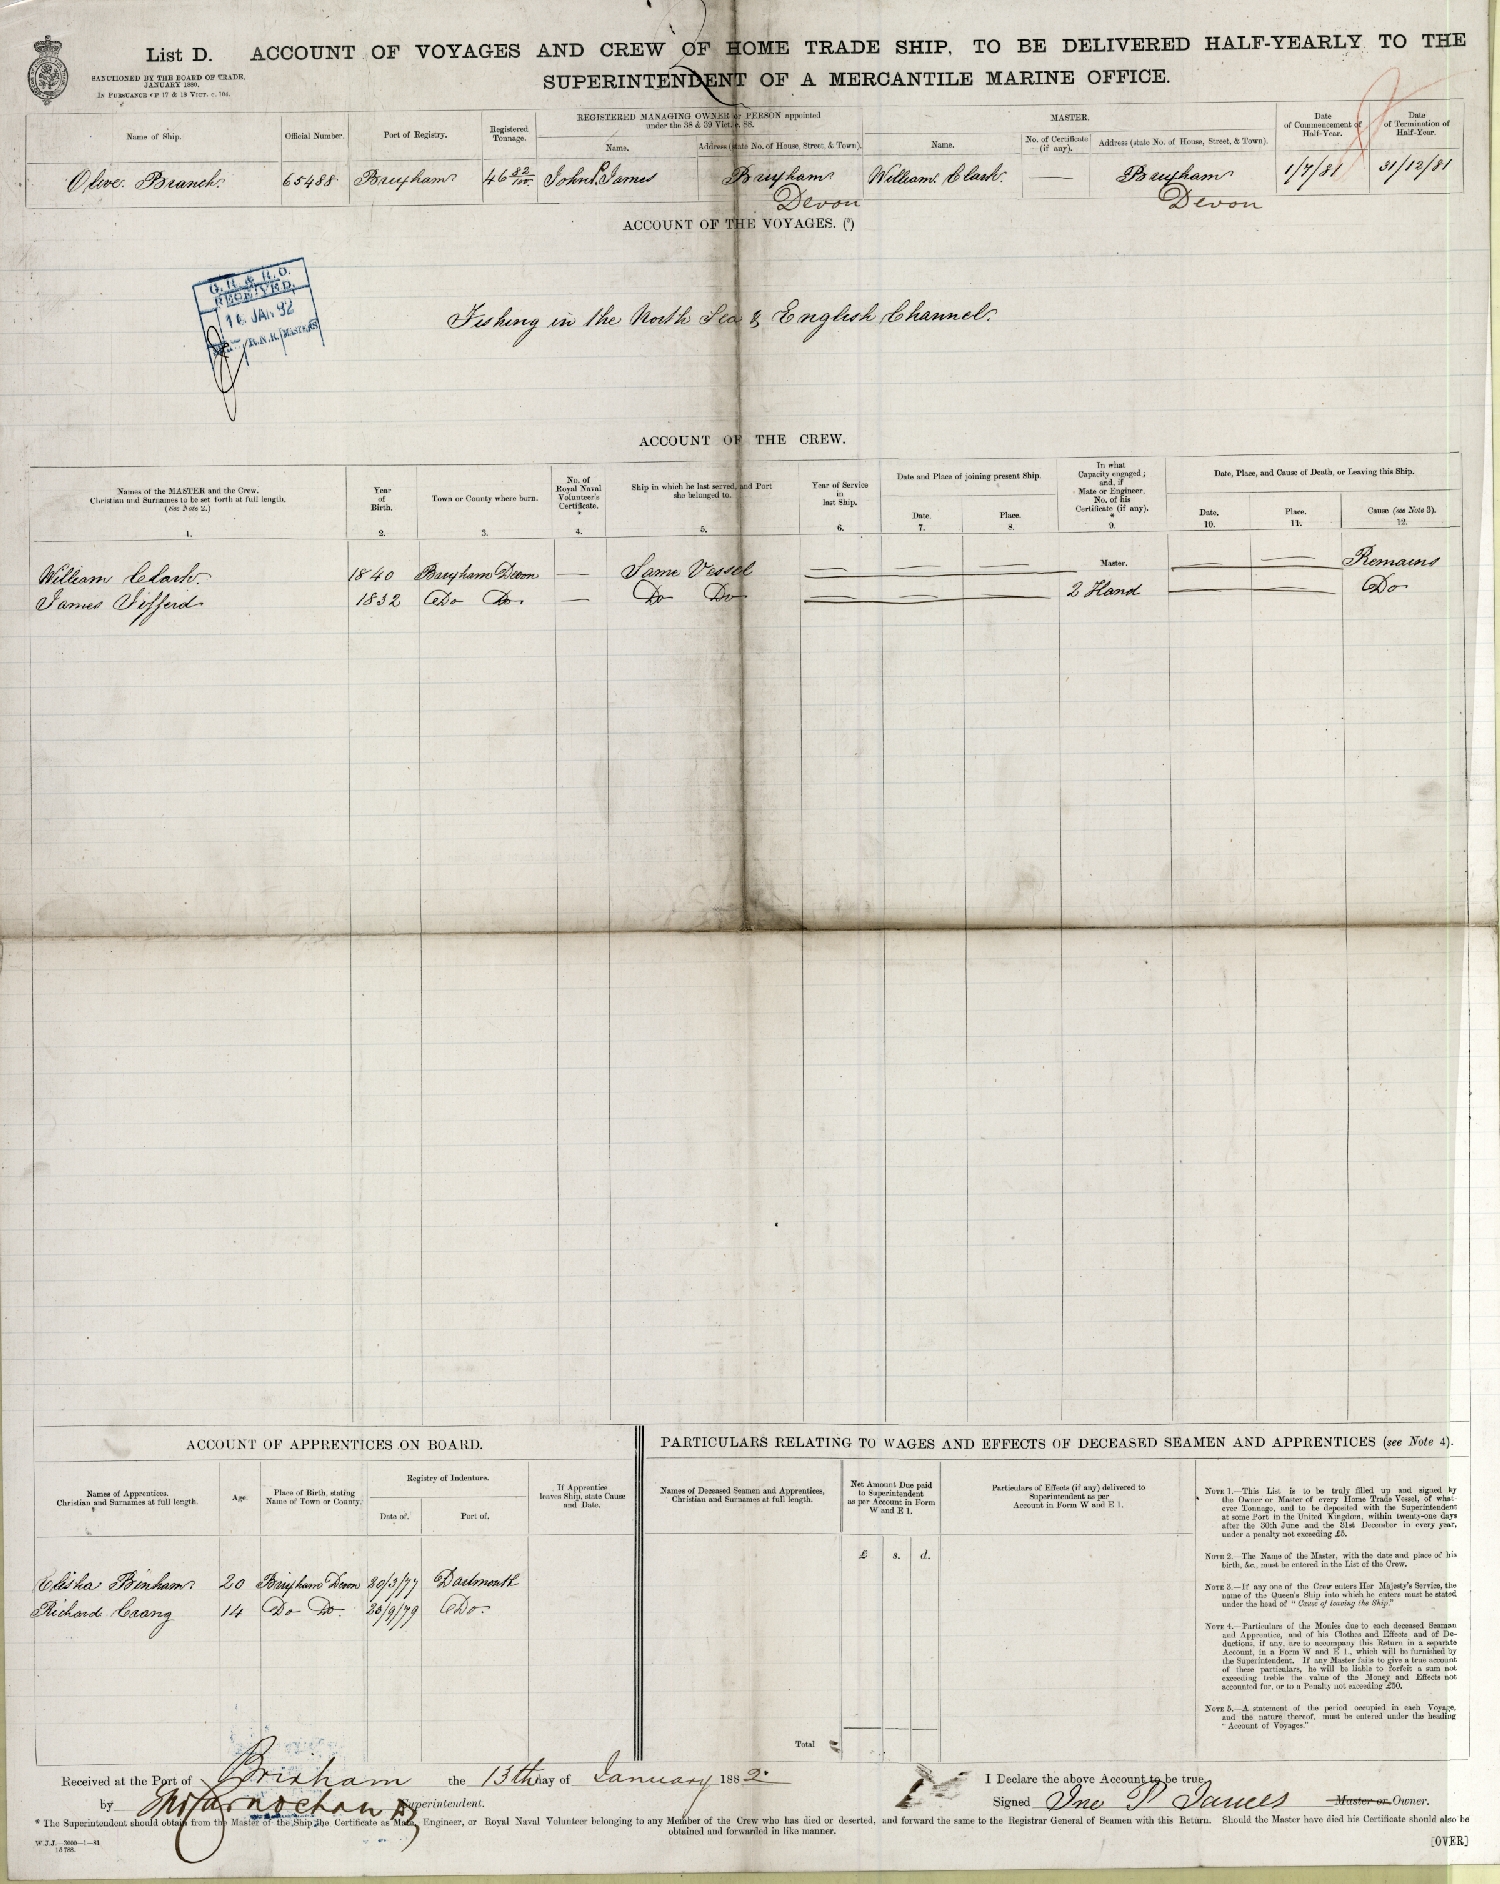 List D. ACCOUNT OF VOYAGES AND CREW OF HOME TRADE SHIP, TO BE DELIVERED HALF-YEARLY TO THE
SUPERINTENDENT OF A MERCANTILE MARINE OFFICE.
SANCTIONED BY THE BOARD OF TRADE,
JANUARY 1880,
IN PURSUANCE OF 17 & 18 VICT. c. 104.
Name of Ship. Official Number. Port of Registry. Registered Tonnage. REGISTERED MANAGING OWNER or PERSON appointed under the 38 & 39 Vict. c. 88. MASTER. Date of Commencement of Half-Year. Date of Termination of Half-Year.
Name. Address (state No. of House, Street, & Town). Name. No. of Certificate (if any). Address (state No. of House, Street, & Town).
Olive Branch 65488 Brixham 46 82/100 John P. James Brixham William Clark — Brixham 1/7/81 31/12/81
Devon Devon
ACCOUNT OF THE VOYAGES. (⁵)
G. R. & R. O.
RECEIVED
16 JAN 82
R.N.R. MASTERS
Fishing in the North Sea & English Channel.
ACCOUNT OF THE CREW.
Names of the MASTER and the Crew. Christian and Surnames to be set forth at full length. (See Note 2.) Year of Birth. Town or County where born. No. of Royal Naval Volunteer's Certificate. * Ship in which he last served, and Port she belonged to. Year of Service in last Ship. Date and Place of joining present Ship. In what Capacity engaged; and, if Mate or Engineer, No. of his Certificate (if any). * Date, Place, and Cause of Death, or Leaving this Ship.
Date. Place. Date. Place. Cause (see Note 3).
1. 2. 3. 4. 5. 6. 7. 8. 9. 10. 11. 12.
William Clark 1840 Brixham Devon — Same Vessel — — — Master. — — Remains
James 1832 Do Do — Do Do — — — 2 Hand — — Do
ACCOUNT OF APPRENTICES ON BOARD. PARTICULARS RELATING TO WAGES AND EFFECTS OF DECEASED SEAMEN AND APPRENTICES (see Note 4).
Names of Apprentices. Christian and Surnames at full length. Age. Place of Birth, stating Name of Town or County. Registry of Indenture. Date of. Port of. If Apprentice leaves Ship, state Cause and Date.
Names of Deceased Seamen and Apprentices, Christian and Surnames at full length. Net Amount Due paid to Superintendent as per Account in Form W and E 1. Particulars of Effects (if any) delivered to Superintendent as per Account in Form W and E 1.
£ s. d.
Elisha Binham 20 Brixham Devon 20/3/77 Dartmouth
Richard Crang 14 Do Do. 23/9/79 Do.
Total
NOTE 1.—This List is to be truly filled up and signed by
the Owner or Master of every Home Trade Vessel, of what-
ever Tonnage, and to be deposited with the Superintendent
at some Port in the United Kingdom, within twenty-one days
after the 30th June and the 31st December in every year,
under a penalty not exceeding £5.
NOTE 2.—The Name of the Master, with the date and place of his
birth, &c., must be entered in the List of the Crew.
NOTE 3.—If any one of the Crew enters Her Majesty's Service, the
name of the Queen's Ship into which he enters must be stated
under the head of "Cause of leaving the Ship."
NOTE 4.—Particulars of the Monies due to each deceased Seaman
and Apprentice, and of his Clothes and Effects and of De-
ductions, if any, are to accompany this Return in a separate
Account, in a Form W and E 1., which will be furnished by
the Superintendent. If any Master fails to give a true account
of these particulars, he will be liable to forfeit a sum not
exceeding treble the value of the Money and Effects not
accounted for, or to a Penalty not exceeding £50.
NOTE 5.—A statement of the period occupied in each Voyage,
and the nature thereof, must be entered under the heading
"Account of Voyages."
Received at the Port of Brixham the 13th day of January 1882 I Declare the above Account to be true,
by Superintendent. Signed Jno P James Master or Owner.
* The Superintendent should obtain from the Master of the Ship the Certificate as Mate, Engineer, or Royal Naval Volunteer belonging to any Member of the Crew who has died or deserted, and forward the same to the Registrar General of Seamen with this Return. Should the Master have died his Certificate should also be
obtained and forwarded in like manner.
W.J.J.—3000—1—81
[OVER]